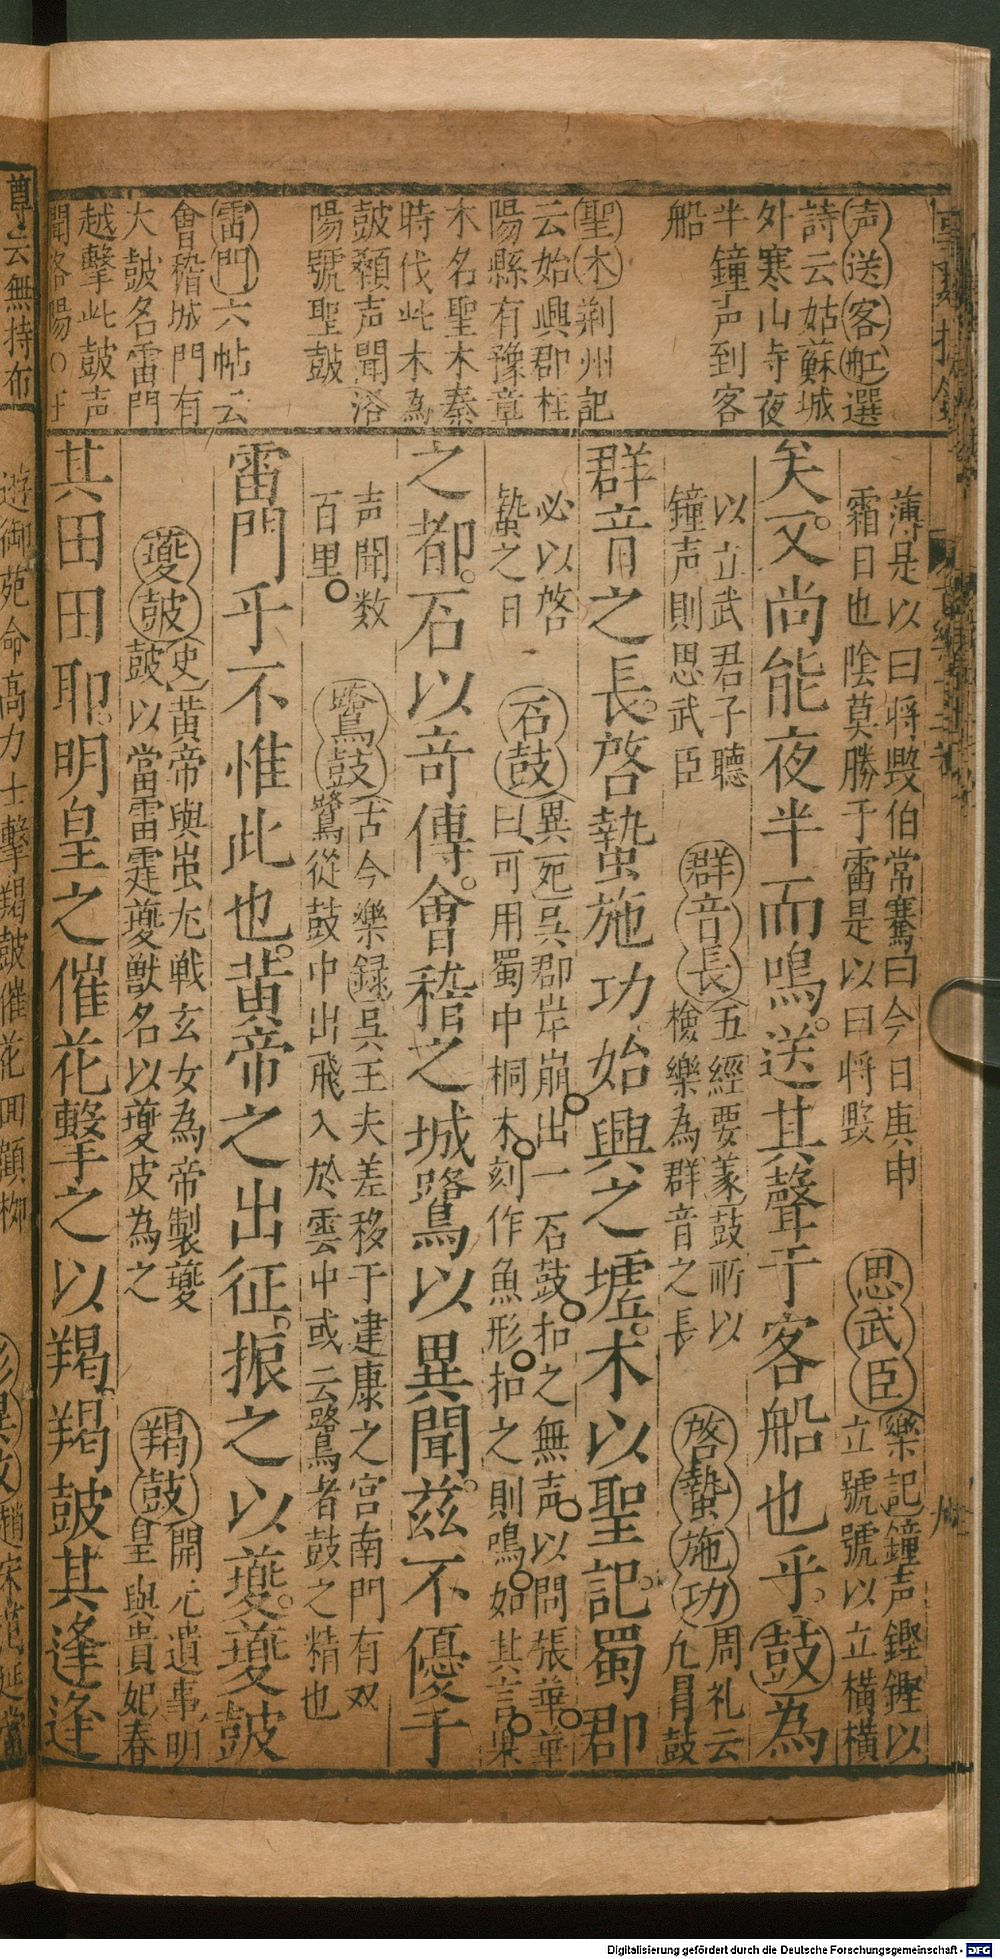 声送客舡選
詩云姑蘇城
外寒山寺夜
半鐘声到客
船
聖木荆州記
云始興郡桂
陽縣有豫章
木名聖木秦
時伐此木為
鼓顙声聞洛
陽號聖鼓
雷門六帖云
會稽城門有
大鼓名雷門
越擊此鼓声
聞洛陽〇王
薄是以曰将毁伯常騫曰今日庚申
霜日也陰莫勝于雷是以曰将毁
思武臣樂記鐘声鏗鏗以
立號號以立横横
矣又尚能夜半而鳴送其聲于客船也乎鼓為
以立武君子聽
鐘声則思武臣
群音長五經要義鼓所以
檢樂為群音之長
啓蟄施功周礼云
凢冒鼓
群音之長啓蟄施功始興之墟木以聖記蜀郡
必以啓
蟄之日
石鼓異苑吴郡岸崩出一石鼓扣之無声以問張華華
曰可用蜀中桐木刻作魚形扣之則鳴如其言果
之都石以竒傳會稽之城鷺以異聞兹不優于
声聞数
百里
鷺鼓古今樂録吴王夫差移于建康之宫南門有双
鷺從鼓中出飛入於雲中或云鷺者鼓之精也
雷門乎不惟此也黄帝之出征振之以夔夔鼓
夔鼓史黄帝與蚩尤戦玄女為帝製夔
鼓以當雷霆夔獣名以夔皮為之
羯鼓開元遺事明
皇與貴妃春
其田田耶明皇之催花擊之以羯羯鼓其逢逢
遊御苑命高力士擊羯鼓催花回顧柳
尊云無持布
Digitalisierung gefördert durch die Deutsche Forschungsgemeinschaft - DFG